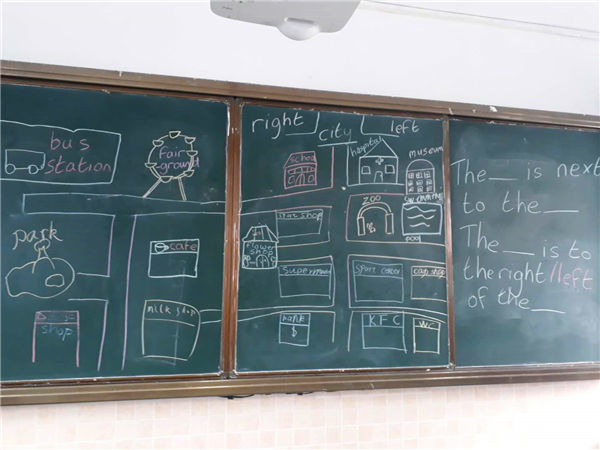 bus
station
Fair
ground
park
cafe
shop
milk shop
right
city
left
school
hospital
museum
zoo
swimming
pool
flower
shop
Supermarket
sport center
cap shop
bank
$
KFC
WC
The__ is next
to the__
The__ is to
the right/left
of the__